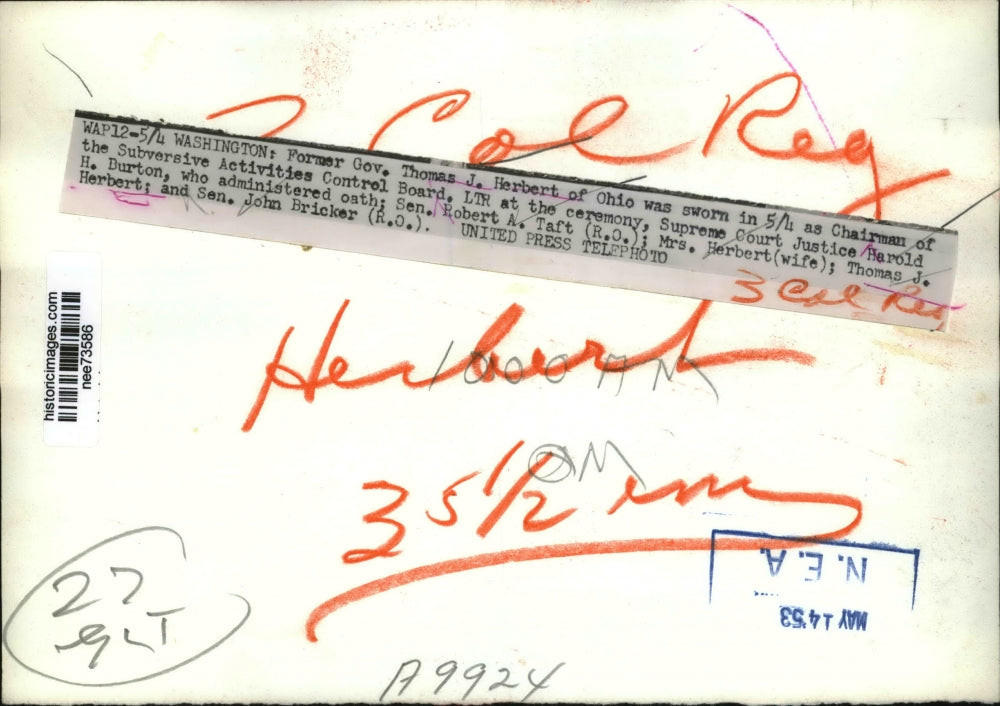 Col Reg
WAP12-5/4 WASHINGTON: Former Gov. Thomas J. Herbert of Ohio was sworn in 5/4 as Chairman of
the Subversive Activities Control Board. LTR at the ceremony, Supreme Court Justice Harold
H. Burton, who administered oath; Sen. Robert A. Taft (R.O.); Mrs. Herbert(wife); Thomas J.
Herbert; and Sen. John Bricker (R.O.).
UNITED PRESS TELEPHOTO
3 Col Reg
historicimages.com
nee73586
Herbert
1000 AM
AM
35 1/2
N.E.A.
MAY 14 '53
27
A9924